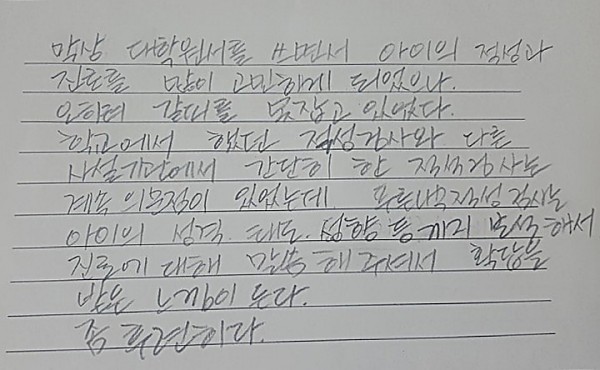 막상 대학원서를 쓰면서 아이의 적성과
진로를 많이 고민하게 되었으나.
오히려 갈피를 못잡고 있었다.
학교에서 했던 적성검사와 다른
사설기관에서 간단히 한 적성검사는
계속 의문점이 있었는데 푸른나무적성검사는
아이의 성격. 태도. 성향 등 까지 분석해서
진로에 대해 말씀 해 주셔서 확답을
받은 느낌이 든다.
좀 후련하다.